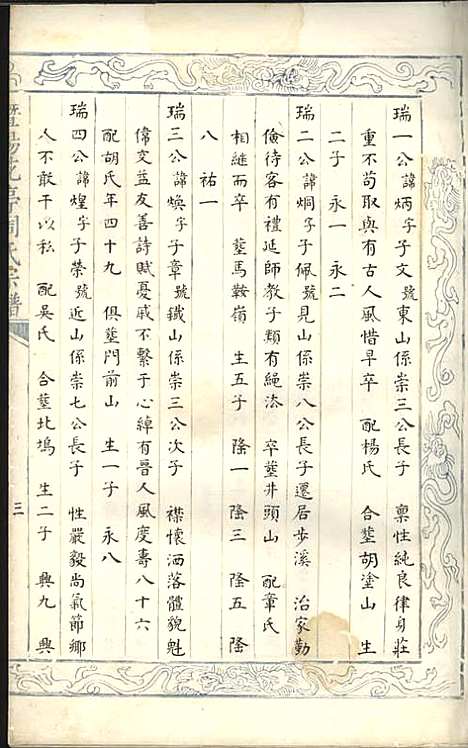 瑞一公諱炳字子文號東山係崇三公長子 稟性純良律身莊
重不苟取與有古人風惜早卒 配楊氏 合塟胡塗山 生
二子 永一 永二
瑞二公諱烱字子佩號見山係崇八公長子遷居步溪 治家勤
儉待客有禮延師教子頗有繩法 卒塟井頭山 配章氏
相繼而卒 塟馬鞍嶺 生五子 隆一 隆三 隆五 隆
八 祐一
瑞三公諱煥字子章號鉄山係崇三公次子 襟懷洒落體貌魁
偉文益友善詩賦憂戚不繫于心綽有晉人風度壽八十六
配胡氏年四十九 俱塟門前山 生一子 永八
瑞四公諱煌字子榮號近山係崇七公長子 性嚴毅尚氣節鄉
人不敢干以私 配吳氏 合塟北塢 生二子 興九 興
暨陽花亭周氏宗譜
三